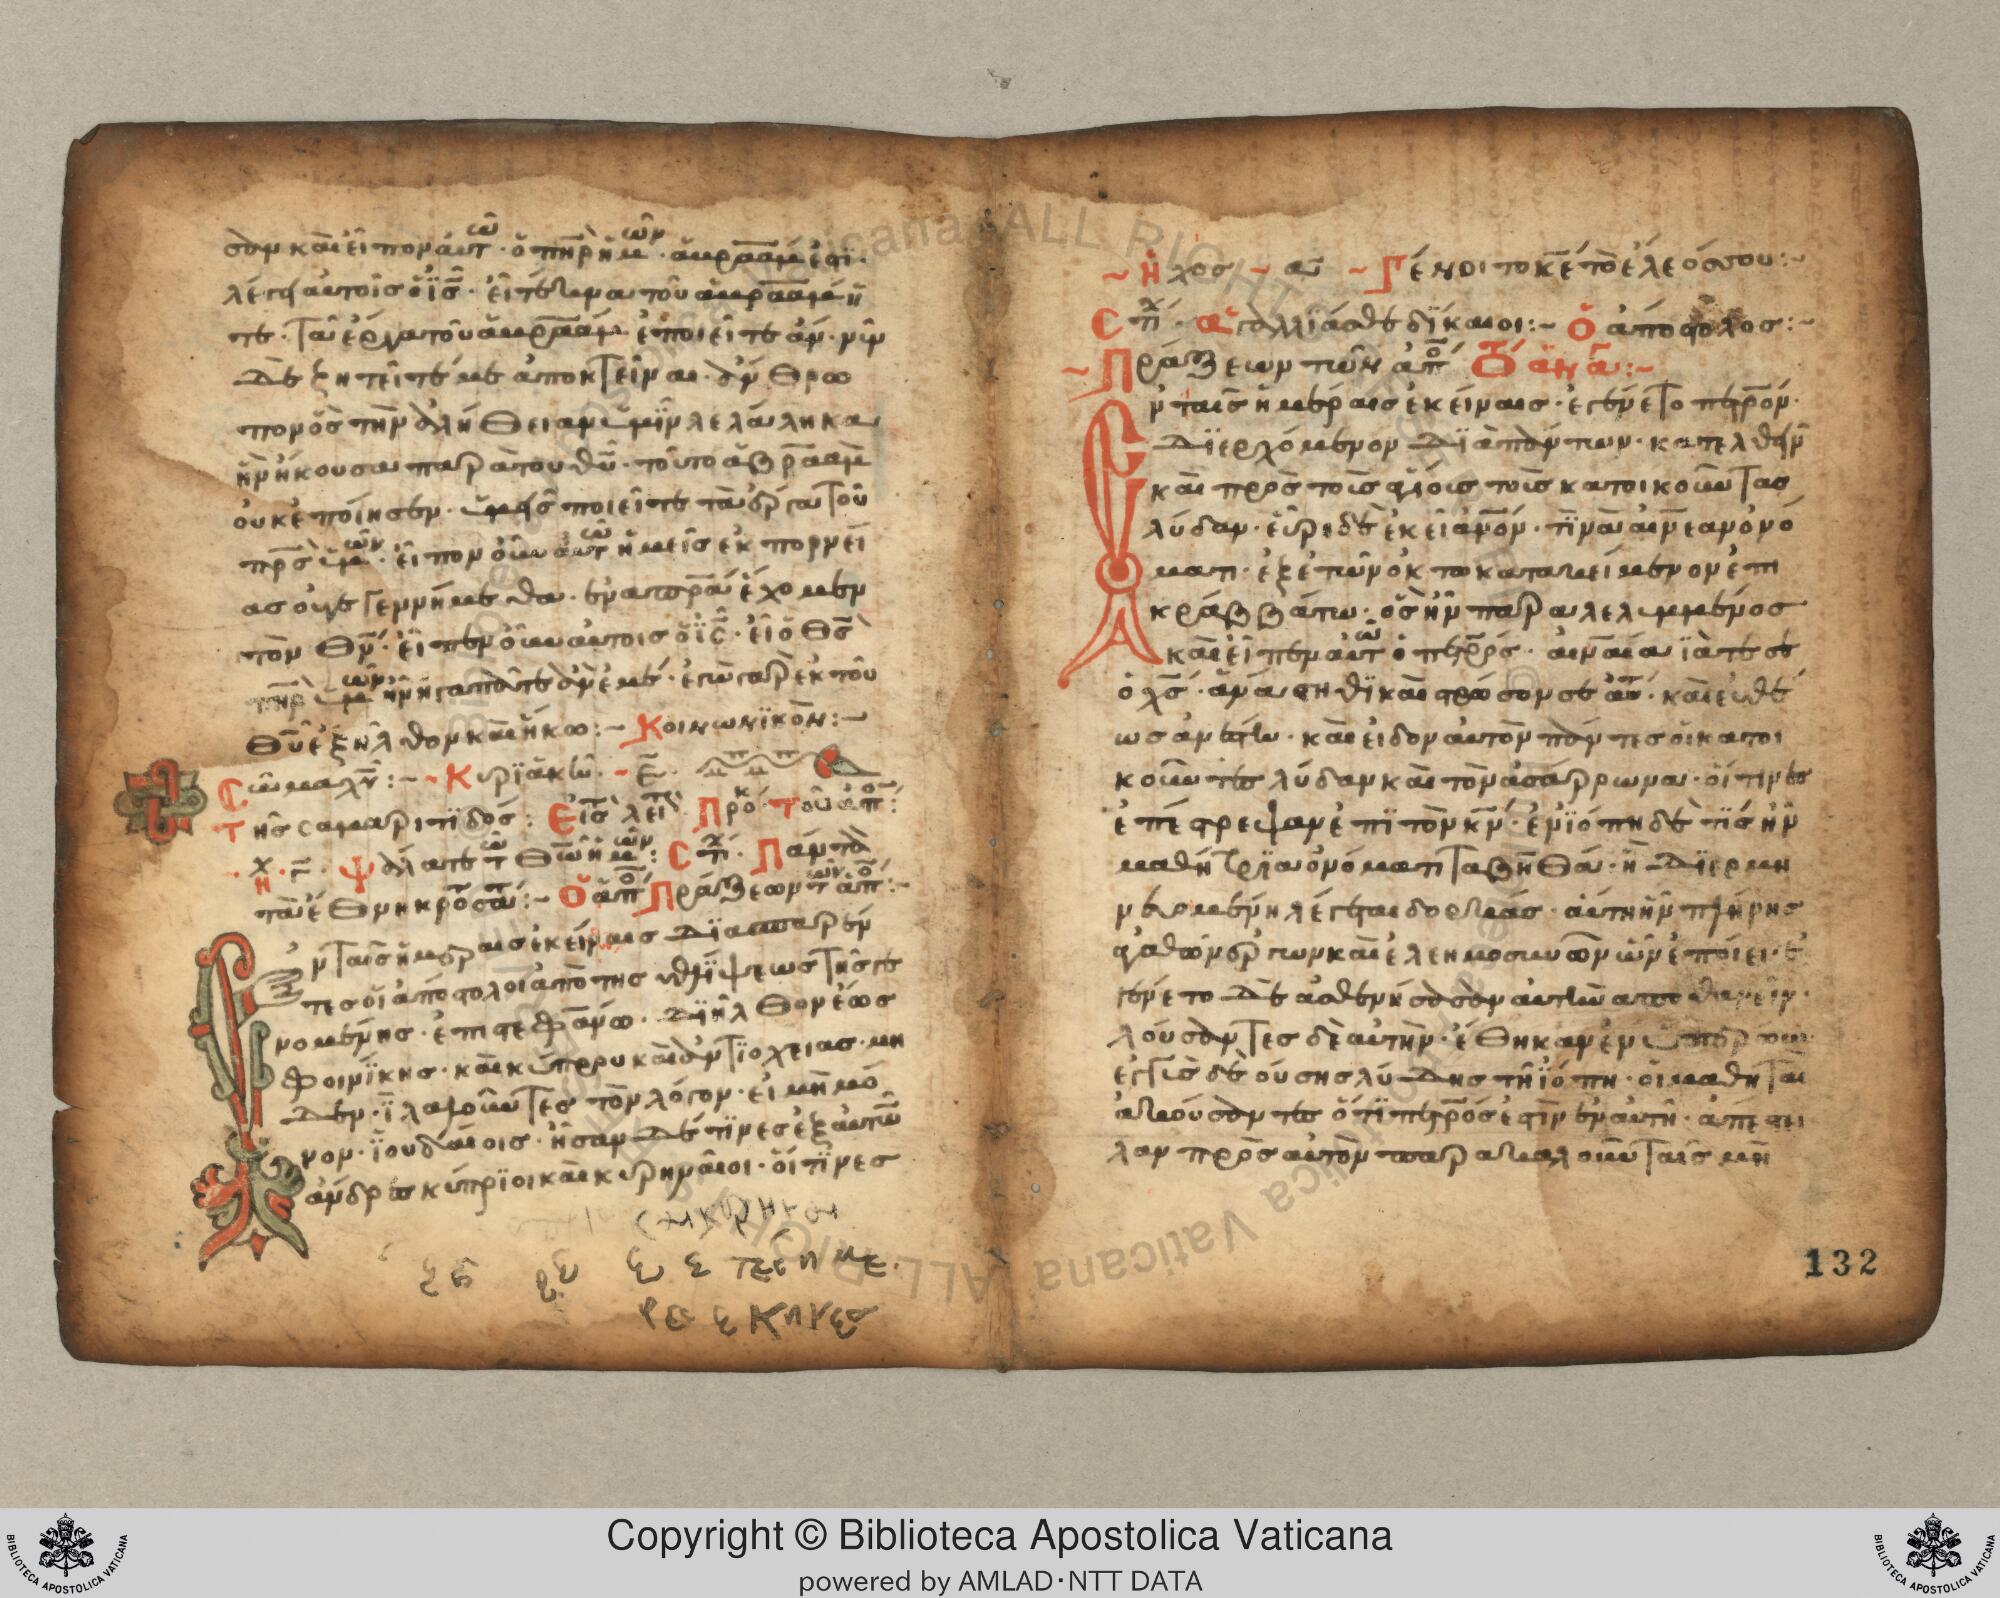 σὰν καὶ εἶπον αὐτῶ· ὁ πηρ ἡμῶν ἀβραάμ ἐστι·
λέγει αὐτοῖς ὁ ις· εἰ τέκνα τοῦ ἀβραάμ ἦ
τε· τὰ ἔργα τοῦ ἀβραάμ ἐποιεῖτε ἄν· νῦν
δὲ ζητεῖτέ με ἀποκτεῖναι· ἄνθρω
πον ὃς τὴν ἀλήθειαν ὑμῖν λελάληκα
ἣν ἤκουσα παρὰ τοῦ θυ· τοῦτο ἀβραὰμ
οὐκ ἐποίησεν· ὑμεῖς ποιεῖτε τὰ ἔργα τοῦ
πρς ὑμῶν· εἶπον οὖν αὐτῶ ἡμεῖς ἐκ πορνεί
ας οὐ γεγεννήμεθα· ἕνα πρα ἔχομεν
τὸν θν· εἶπεν οὖν αὐτοις ὁ ις· εἰ ὁ θς
πηρ ὑμῶν ἦν ἠγαπᾶτε ἂν ἐμέ· ἐγὼ γὰρ ἐκ τοῦ
θυ ἐξῆλθον καὶ ἥκω:~ Κοινωνϊκὸν:~
Σῶμα χυ:~ ~Κυρϊακῆ ~ε~
Τῆς σαμαρίτιδος: Εἰς λει Προκ Τοῦ ἀπ:
ηχ· γ· Ψάλατε τῶ θῶ ἡμῶν: Στι· Πάντα
τὰ ἔθνη κροτσα:~ Ὁ ἀπο Πράξεων τῶν ἀπο:~
Ἐν ταῖς ἡμέραις ἐκείναις διασπαρέν
τες οἱ ἀπόστολοι ἀπὸ τῆς θλίψεως τῆς γε
νομένης· ἐπὶ στεφάνω· διῆλθον ἕως
φοινίκης· καὶ κύπρου καὶ ἀντϊοχείας· μη
δενι λαλοῦντες τὸν λόγον· εἰ μὴ μό
νον· ἰουδαίοις· ἦσαν δέ τινες ἐξ αὐτῶν
ἄνδρες κύπριοι καὶ κυρηναῖοι· οἵτινες
~Ἦχος ~ α ~Γένοιτο κε τὸ ἔλεός σου:~
Στιχ· Ἀγαλλιᾶσθε δίκαιοι:~ Ὁ ἀπόστολος:~
~Πράξεων τῶν ἀπο
Ἐν ταις ἡμέραις ἐκείναις· ἐγένετο πετρον·
διερχόμενον διὰ πάντων· κατελθεῖν
καὶ πρὸς τοὺς ἁγίοις τοῖς κατοικοῦντας
λύδαν· εὗρε δὲ ἐκεῖ ανον· τινὰ αἰνέαν ὀνό
ματι· ἐξ ἐτῶν ὀκτὼ κατακείμενον ἐπὶ
κραββάτω· ὃς ἦν παραλελυμμένος
καὶ εἶπεν αὐτῶ ὁ πέτρος· αἰνέα ἰᾶταί σε
ὁ χς· ἀνάστηθι καὶ στρῶσον σε αυτ· καὶ εὐθέ
ως ἀνέστη· καὶ εἶδον αὐτὸν πάντες οἱ κατοι
κοῦντες λύδαν καὶ τὸν ἀσάρρωνα· οἵτινες
ἐπέστρεψαν ἐπὶ τὸν κν· ἐν ϊόπη δέ τις ἦν
μαθήτρϊα ὀνόματι ταβηθά· ἣ διερμη
νευομένη λέγεται δορκάς· αὕτη ἦν πλήρης
ἀγαθῶν ἔργων καὶ ἐλεημοσυνῶν ὧν ἐποίει· ἐ
γένετο δὲ ἀσθενήσασαν αὐτὴν ἀποθανεῖν·
λούσαντες δὲ αὐτὴν· ἔθηκαν ἐν ὑπερώω
ἐγγὺς δὲ οὔσης λύδης τῆ ϊόπη· οἱ μαθηταὶ
ἀκούσαντες ὅτι πέτρος ἐστὶν ἐν αὐτῆ· ἀπέστει
λαν πρὸς αὐτὸν παρακαλοῦνταις μὴ
132
Copyright © Biblioteca Apostolica Vaticana
powered by AMLAD·NTT DATA
BIBLIOTECA APOSTOLICA VATICANA
BIBLIOTECA APOSTOLICA VATICANA